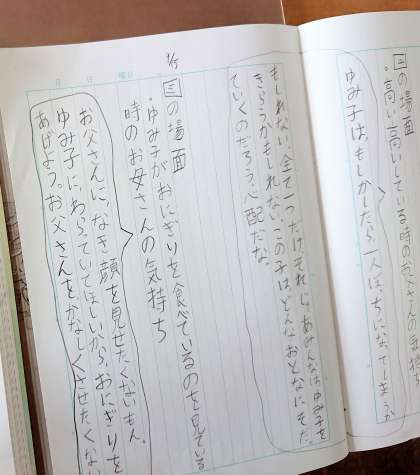 二の場面
・高い高いしている時のお父さんの気持ち
ゆみ子は、もしかしたら、一人ぼっちになってしまうか
もしれない。全て一つだけ。それじゃあみんなは、ゆみ子を
きらうかもしれない。この子は、どんなおとなにそだっ
ていくのだろう。心配だな。
三の場面
・ゆみ子がおにぎりを食べているのを見ている
時のお母さんの気持ち
お父さんに、なき顔を見せたくないもん。
ゆみ子に、わらっていてほしいから、おにぎりを
あげよう。お父さんをかなしくさせたくない
月 日 曜日